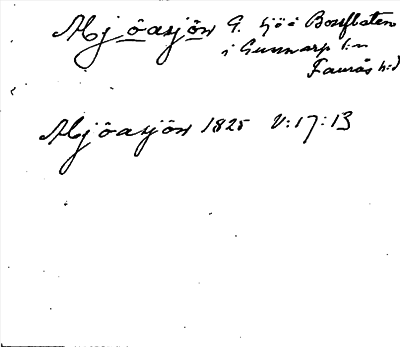 Mjöasjön G. sjö i Bosflaten
i Gunnarp sn
Faurås hd
Mjöasjön 1825 V:17:13